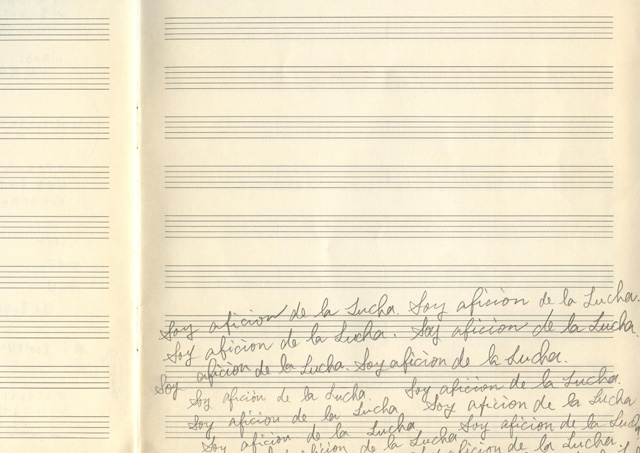 Soy aficion de la Lucha. Soy aficion de la Lucha.
Soy aficion de la Lucha. Soy aficion de la Lucha.
Soy aficion de la Lucha. Soy aficion de la Lucha.
Soy aficion de la Lucha. Soy aficion de la Lucha.
Soy aficion de la Lucha Soy aficion de la Lucha
Soy aficion de la Lucha Soy aficion de la Lucha